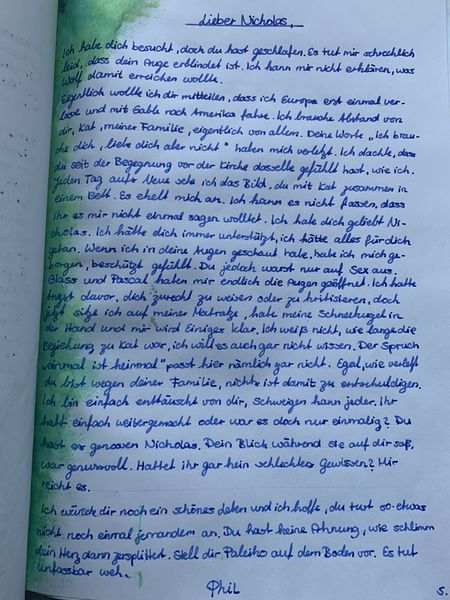 Lieber Nicholas,
Ich habe dich besucht, doch du hast geschlafen. Es tut mir schrecklich
leid, dass dein Auge erblindet ist. Ich kann mir nicht erklären, was
Wolf damit erreichen wollte.
Eigentlich wollte ich dir mitteilen, dass ich Europa erst einmal ver-
lasse und mit Gable nach Amerika fahre. Ich brauche Abstand von
dir, Kat, meiner Familie, eigentlich von allem. Deine Worte „Ich brau-
che dich, liebe dich aber nicht" haben mich verletzt. Ich dachte, dass
du seit der Begegnung vor der Kirche dasselbe gefühlt hast, wie ich.
Jeden Tag aufs Neue sehe ich das Bild, du mit Kat zusammen in
einem Bett. Es ekelt mich an. Ich kann es nicht fassen, dass
ihr es mir nicht einmal sagen wolltet. Ich habe dich geliebt Ni-
cholas. Ich hätte dich immer unterstützt, ich hätte alles für dich
getan. Wenn ich in deine Augen geschaut habe, habe ich mich ge-
borgen, beschützt gefühlt. Du jedoch warst nur auf Sex aus.
Glass und Pascal haben mir endlich die Augen geöffnet. Ich hatte
Angst davor, dich zurecht zu weisen oder zu kritisieren, doch
jetzt sitze ich auf meiner Matratze, habe meine Schneekugel in
der Hand und mir wird Einiges klar. Ich weiß nicht, wie lange die
Beziehung zu Kat war, ich will es auch gar nicht wissen. Der Spruch
„einmal ist keinmal" passt hier nämlich gar nicht. Egal, wie verletzt
du bist wegen deiner Familie, nichts ist damit zu entschuldigen.
Ich bin einfach enttäuscht von dir, Schweigen kann jeder. Ihr
habt einfach weitergemacht oder war es doch nur einmalig? Du
hast es genossen Nicholas. Dein Blick während sie auf dir saß,
war genussvoll. Hattet ihr gar kein schlechtes Gewissen? Mir
reicht es.
Ich wünsche dir noch ein schönes Leben und ich hoffe, du tust so etwas
nicht noch einmal jemandem an. Du hast keine Ahnung, wie schlimm
dein Herz dann zersplittert. Stell dir Paleiko auf dem Boden vor. Es tut
unfassbar weh.
Phil
5.